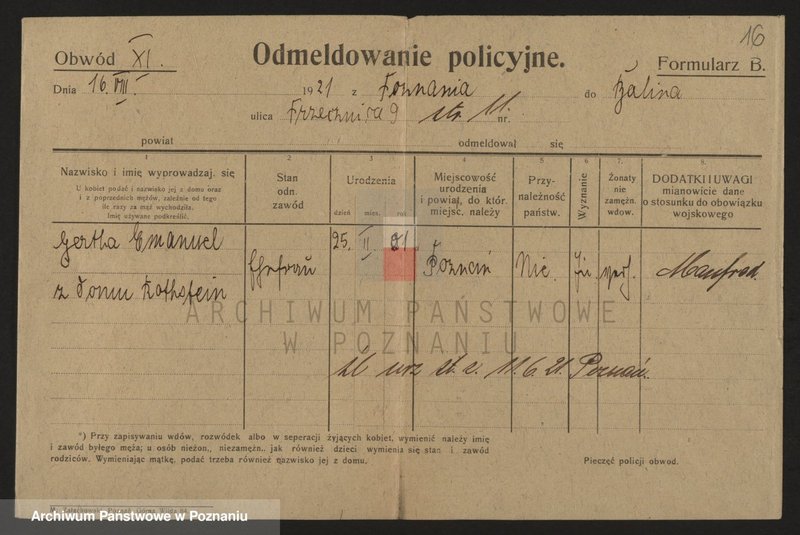 16
Obwód XI.
Odmeldowanie policyjne.
Formularz B.
Dnia 16. VIII. 1921 z Poznania do
ulica 9 nr. 11.
powiat odmeldował się
1 2 3 4 5 6 7. 8.
Nazwisko i imię wyprowadzaj. się
U kobiet podać i nazwisko jej z domu oraz
i z poprzednich mężów, zależnie od tego
ile razy za mąż wychodziła.
Imię używane podkreślić.
Stan
odn.
zawód
Urodzenia
dzień mies. rok
Miejscowość
urodzenia
i powiat, do któr.
miejsc. należy
Przy-
należność
państw.
Wyznanie
Żonaty
nie
zamężn.
wdow.
DODATKI I UWAGI
mianowicie dane
o stosunku do obowiązku
wojskowego
Gertha Emanuel
25. II
z domu Rothstein
Ehefrau
Poznań
Nie.
verh.
Manfred.
11.6.21. Poznań.
ARCHIWUM PAŃSTWOWE
W POZNANIU
*) Przy zapisywaniu wdów, rozwódek albo w seperacji żyjących kobiet, wymienić należy imię
i zawód byłego męża; u osób nieżon., niezamężn.. jak również dzieci wymienia się stan i zawód
rodziców. Wymieniając mątkę, podać trzeba również nazwisko jej z domu.
Pieczęć policji obwod.
Archiwum Państwowe w Poznaniu